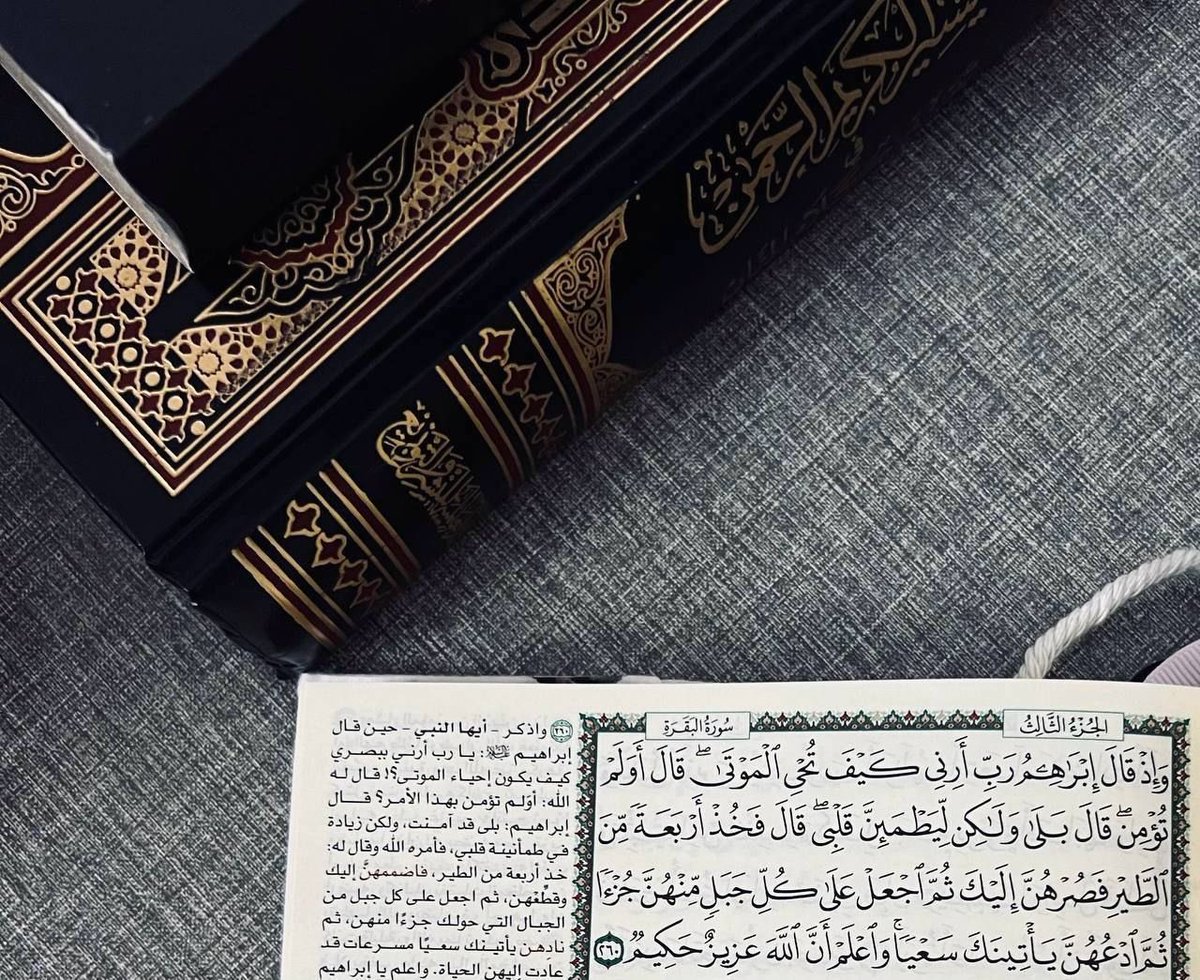 الكريم الرحمن
في
الجُزْءُ الثَّالِثُ
سُورَةُ البَقَرَةِ
وَإِذْ قَالَ إِبْرَٰهِـۧمُ رَبِّ أَرِنِى كَيْفَ تُحْىِ ٱلْمَوْتَىٰۖ قَالَ أَوَلَمْ
تُؤْمِنۖ قَالَ بَلَىٰ وَلَٰكِن لِّيَطْمَئِنَّ قَلْبِىۖ قَالَ فَخُذْ أَرْبَعَةً مِّنَ
ٱلطَّيْرِ فَصُرْهُنَّ إِلَيْكَ ثُمَّ ٱجْعَلْ عَلَىٰ كُلِّ جَبَلٍ مِّنْهُنَّ جُزْءًا
ثُمَّ ٱدْعُهُنَّ يَأْتِينَكَ سَعْيًاۚ وَٱعْلَمْ أَنَّ ٱللَّهَ عَزِيزٌ حَكِيمٌ ٢٦٠
٢٦٠ واذكر - أيها النبي - حين قال
إبراهيم ﵇: يا رب أرني ببصري
كيف يكون إحياء الموتى؟! قال له
الله: أوَلم تؤمن بهذا الأمر؟ قال
إبراهيم: بلى قد آمنت، ولكن زيادة
في طمأنينة قلبي، فأمره الله وقال له:
خذ أربعة من الطير، فاضممهنَّ إليك
وقطِّعهن، ثم اجعل على كل جبل من
الجبال التي حولك جزءًا منهن، ثم
نادِهن يأتينك سعيًا مسرعات قد
عادت إليهن الحياة. واعلم يا إبراهيم